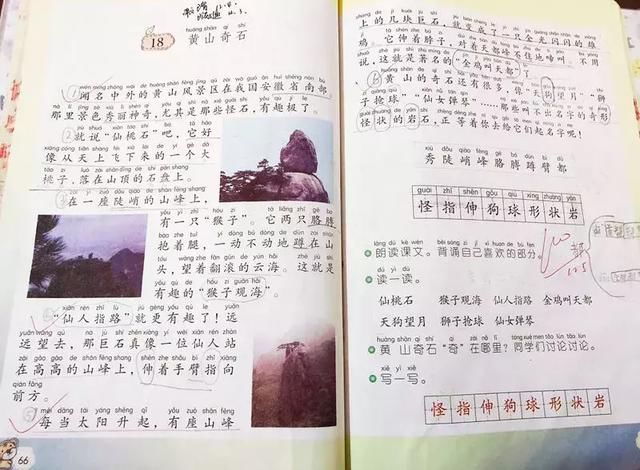 18
huáng shān qí shí
黄山奇石
闻名中外的黄山风景区在我国安徽省南部。
那里景色秀丽神奇，尤其是那些怪石，有趣极了。
就说“仙桃石”吧，它好
像从天上飞下来的一个大
桃子，落在山顶的石盘上。
在一座陡峭的山峰上，
有一只“猴子”。它两只胳膊
抱着腿，一动不动地蹲在山
头，望着翻滚的云海。这就是
有趣的“猴子观海”。
“仙人指路”就更有趣了！远
远望去，那巨石真像一位仙人站
在高高的山峰上，伸着手臂指向
前方。
每当太阳升起，有座山峰
66
上的几块巨石，就变成了一只金光闪闪的雄
鸡。它伸着脖子，对着天都峰不住地啼叫。不用
说，这就是著名的“金鸡叫天都”了。
黄山的奇石还有很多，像“天狗望月”“狮
子抢球”“仙女弹琴”……那些叫不出名字的奇形
怪状的岩石，正等着你去给它们起名字呢！
xiù dǒu qiào fēng gē bo dūn bì dū
秀陡峭峰胳膊蹲臂都
guài zhǐ shēn gǒu qiú xíng zhuàng yán
怪指伸狗球形状岩
lǎng dú kè wén bèi sòng zì jǐ xǐ huan de bù fen
朗读课文。背诵自己喜欢的部分。
dú yi dú
读一读。
仙桃石 猴子观海 仙人指路 金鸡叫天都
天狗望月 狮子抢球 仙女弹琴
黄山奇石“奇”在哪里？同学们讨论讨论。
xiě yi xiě
写一写。
怪指伸狗球形状岩